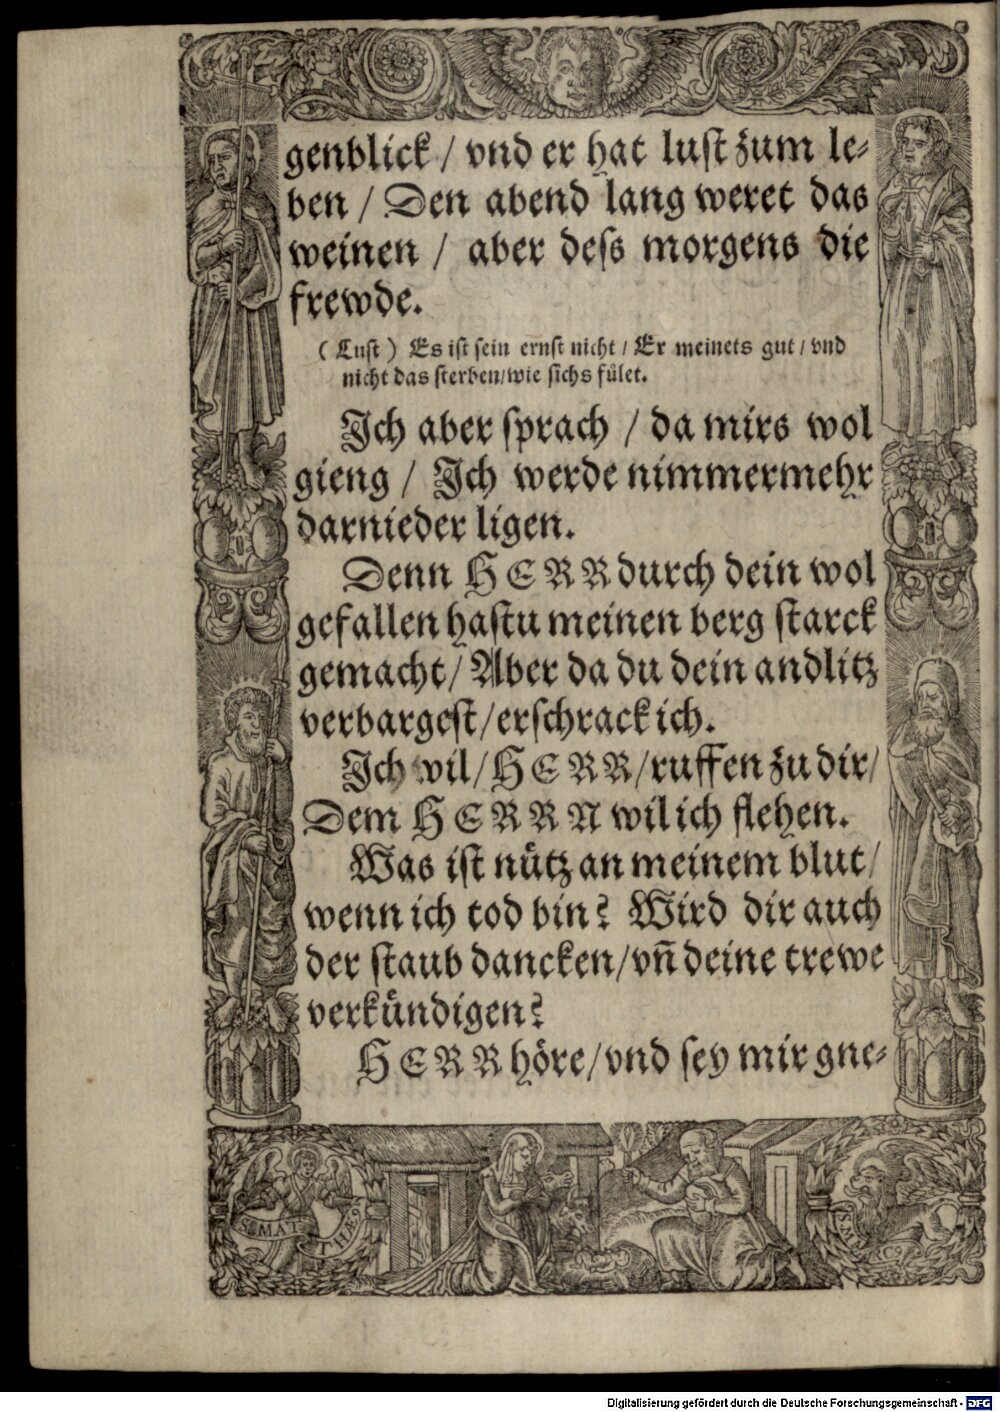 genblick / vnd er hat lust zum le⸗
ben / Den abend lang weret das
weinen / aber dess morgens die
frewde.
( Lust ) Es ist sein ernst nicht / Er meinets gut / vnd
nicht das sterben/wie sichs fület.
Ich aber sprach / da mirs wol
gieng / Ich werde nimmermehr
darnieder ligen.
Denn HERR durch dein wol
gefallen hastu meinen berg starck
gemacht/ Aber da du dein andlitz
verbargest/erschrack ich.
Ich wil/HERR/ruffen zu dir/
Dem HERRN wil ich flehen.
Was ist nütz an meinem blut/
wenn ich tod bin? Wird dir auch
der staub dancken/vn̄ deine trewe
verkündigen?
HERR höre/vnd sey mir gne⸗
S. MAT
THÆ9
S. M
C9
Digitalisierung gefördert durch die Deutsche Forschungsgemeinschaft - DFG